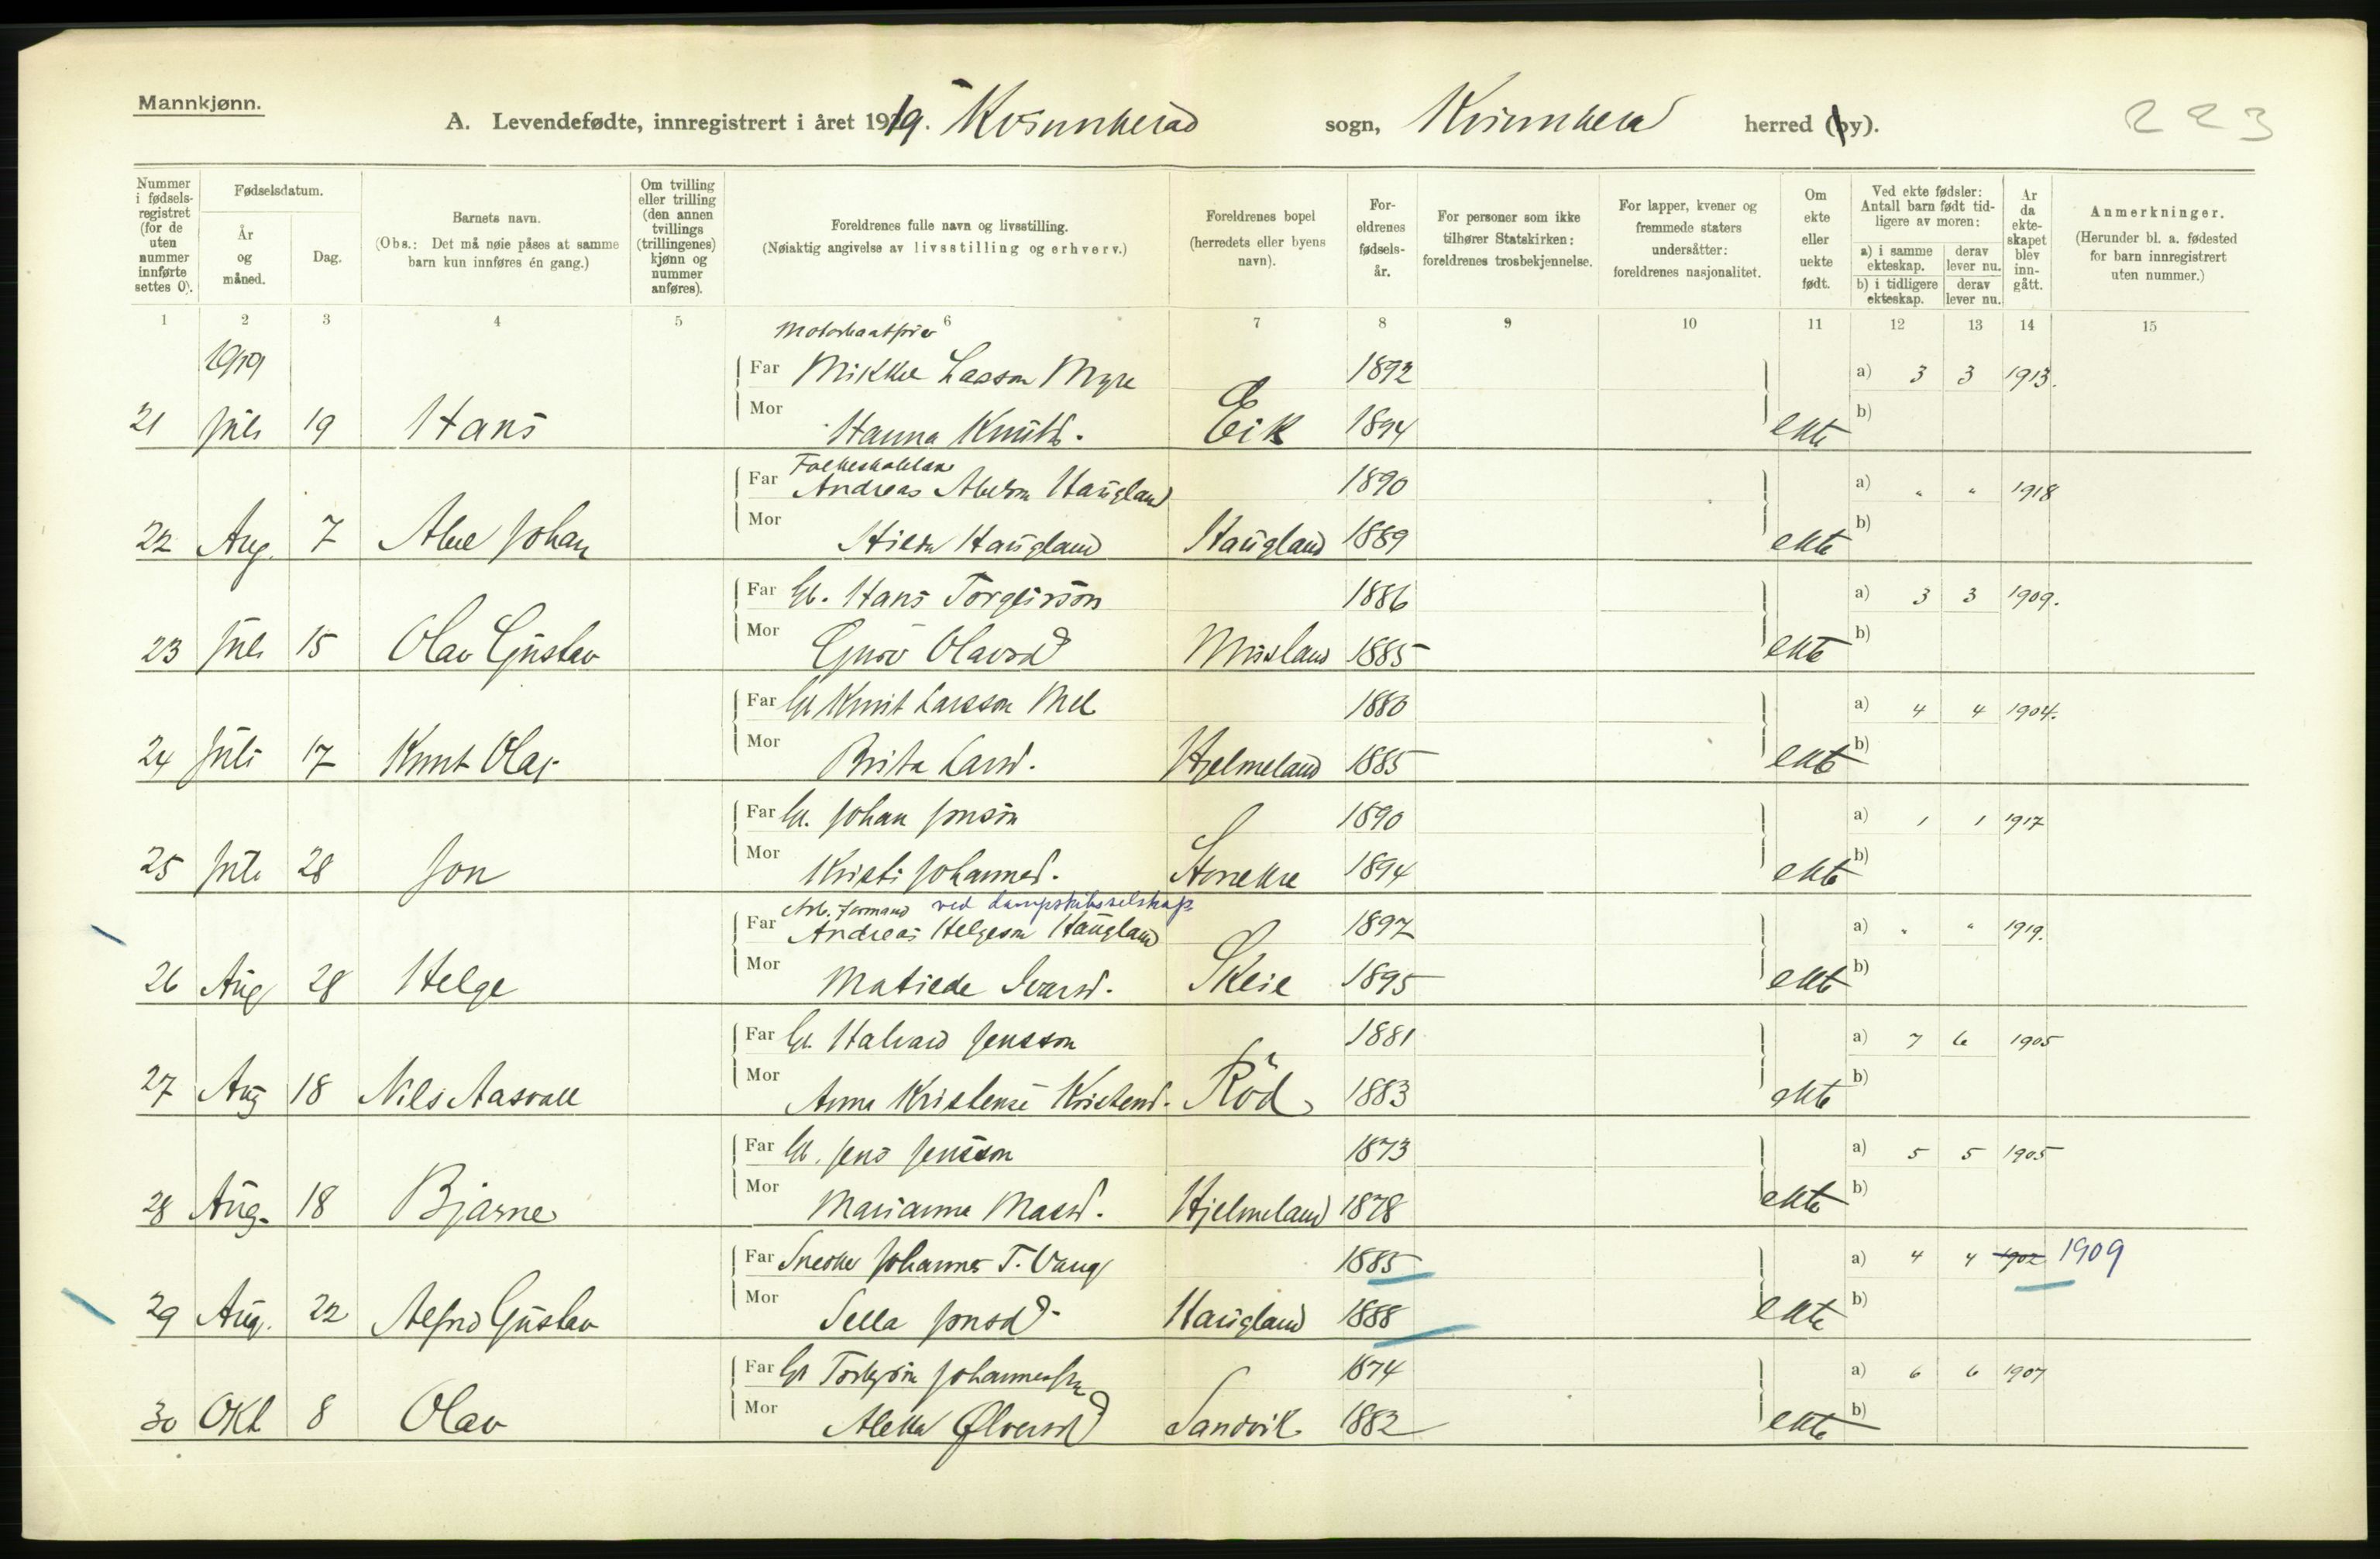 Mannkjønn.
A. Levendefødte, innregistrert i året 1919. Kvinnherad sogn, Kvinnherad herred (by). 223
Nummer i fødselsregistret (for de uten nummer innførte settes 0).
Fødselsdatum.
År og måned.
Dag.
Barnets navn.
(Obs.: Det må nøie påses at samme barn kun innføres én gang.)
Om tvilling eller trilling (den annen tvillings (trillingenes) kjønn og nummer anføres).
Foreldrenes fulle navn og livsstilling.
(Nøiaktig angivelse av livsstilling og erhverv.)
Foreldrenes bopel (herredets eller byens navn).
Foreldrenes fødselsår.
For personer som ikke tilhører Statskirken: foreldrenes trosbekjennelse.
For lapper, kvener og fremmede staters undersåtter: foreldrenes nasjonalitet.
Om ekte eller uekte født.
Ved ekte fødsler: Antall barn født tidligere av moren:
a) i samme ekteskap. derav lever nu.
b) i tidligere ekteskap. derav lever nu.
År da ekteskapet blev inngått.
Anmerkninger.
(Herunder bl. a. fødested for barn innregistrert uten nummer.)
1 2 3 4 5 6 7 8 9 10 11 12 13 14 15
1919
Far Mikkel Larsson Myre 1892 a) 3 3 1913.
21 Juli 19 Hans Mor Hanna Knutsd. Eik 1894 ekte b)
Far Andreas Abelson Haugland 1890 a) " " 1918
22 Aug. 7 Abel Johan Mor Hilda Haugland Haugland 1889 ekte b)
Far Gb. Hans Torgeirson 1886 a) 3 3 1909.
23 Juli 15 Olav Gustav Mor Guro Olavsd Musland 1885 ekte b)
Far Gb Knut Larsson Mel 1880 a) 4 4 1904.
24 Juli 17 Knut Olaf Mor Brita Larsd. Hjelmeland 1885 ekte b)
Far Gb. Johan Jonson 1890 a) 1 1 1917
25 Juli 28 Jon Mor Kristi Johannesd. 1894 ekte b)
Arb. formand ved dampskibsselskap
Far Andreas Helgeson Haugland 1897 a) " " 1919.
26 Aug 28 Helge Mor Matilde Ivarsd. Skeie 1895 ekte b)
Far Gb. Halvard Jensson 1881 a) 7 6 1905
27 Aug 18 Nils Aasvall Mor Anna Kristense Kristensd. Röd 1883 ekte b)
Far Gb. Jens Jensson 1873 a) 5 5 1905
28 Aug. 18 Bjarne Mor Marianna Massd. Hjelmeland 1878 ekte b)
Far Snedker Johannes T. Vaug 1885 a) 4 4 1902 1909
29 Aug. 22 Alfred Gustav Mor Sella Jonsd. Haugland 1888 ekte b)
Far Gb Torbjörn Johannessen 1874 a) 6 6 1907
30 Okt 8 Olav Mor Aletta Ølversd Sandvik 1882 ekte b)